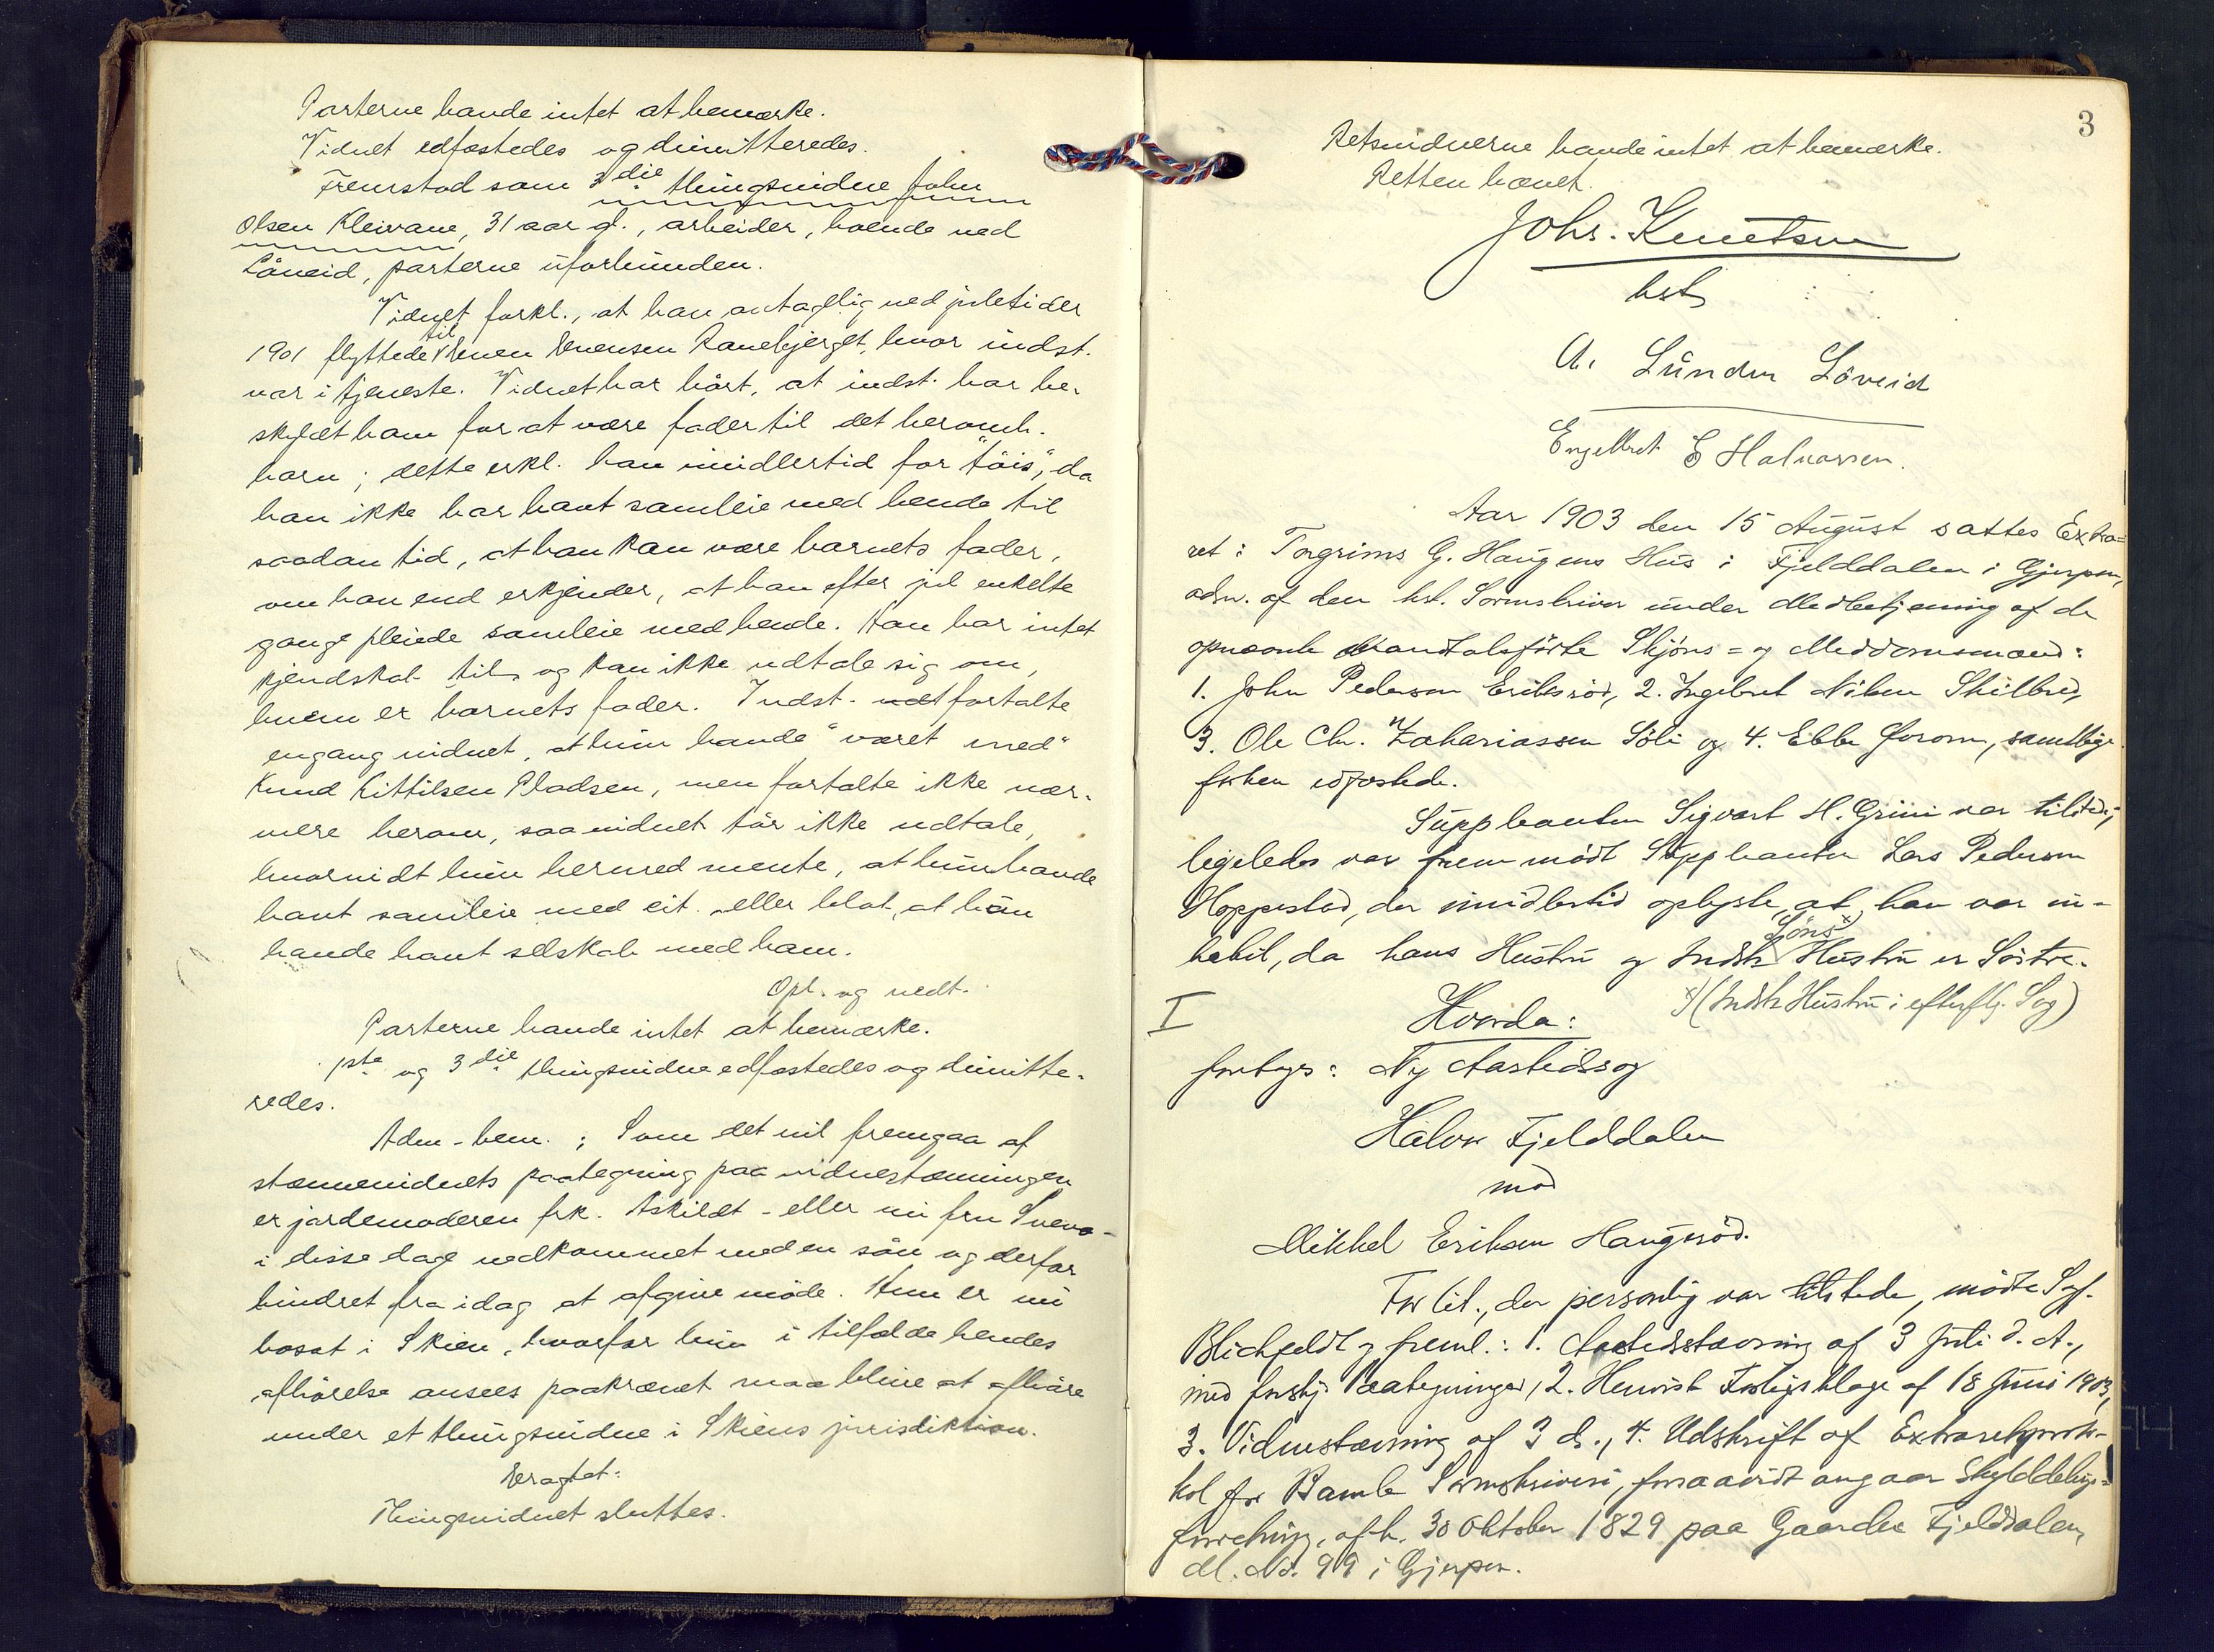 Parterne havde intet at bemærke.
Vidnet edfæstedes og dimitteredes.
Fremstod som 3die thingsvidne John
Olsen Kleivane, 31 aar gl., arbeider, boende ved
Löveid, parterne uforbunden.
Vidnet forkl., at han antagelig ved juletider
1901 flyttede til Even Evensen Ranebjerget, hvor indst.
var i tjeneste. Vidnet har hört, at indst. har be-
skyldt ham for at være fader til det heromh.
barn; dette erkl. han imidlertid for "töis", da
han ikke har havt samleie med hende til
saadan tid, at han kan være barnets fader,
om han end erkjender, at han efter jul enkelte
gange pleiede samleie med hende. Han har intet
kjendskab til og kan ikke udtale sig om,
hvem er barnets fader. Indst. fortalte
engang vidnet, at hun havde "været med"
Knud Kittilsen Pladsen, men fortalte ikke nær-
mere herom, saa vidnet tör ikke udtale,
hvorvidt hun hermed mente, at hun havde
havt samleie med cit. eller blot, at hun
havde havt selskab med ham.
Opl. og vedt.
Parterne havde intet at bemærke.
1ste og 3die thingsvidne edfæstedes og dimitte-
redes.
Adm. bem.: Som det vil fremgaa af
stævnevidnets paategning paa vidnestævningen
er jordemoderen frk. Askildt - eller nu fru
i disse dage nedkommet med en sön og derfor
hindret fra idag at afgive möde. Hun er nu
bosat i Skien, hvorfor hun i tilfælde hendes
afhörelse ansees paakrævet maa blive at afhöre
under et thingsvidne i Skiens jurisdiktion.
Eragtet:
Thingsvidnet sluttes.
3
Retsvidnerne havde intet at bemærke.
Retten hævet.
Johs. Knutsen
bst
A. Lunden Löveid
Engelbret E Halvorsen.
Aar 1903 den 15 August sattes Extra-
ret i Torgrims G. Haugens Hus i Fjelddalen i Gjerpen,
adm. af den bst. Sorenskriver under Medbetjening af de
opnævnte mandtalsförte Skjöns- og Meddomsmænd:
1. John Pedersen Eriksröd, 2. Ingebret Nilsen Skilbred,
3. Ole Chr. Zakariassen Söli og 4. Ebbe Jorom, samtlige
forhen edfæstede.
Supplianten Sigvart H. Grini var tilsted;
ligeledes var fremmödt Suppleanten Lars Pedersen
Hoppestad, der imidlertid oplyste, at han var in-
habil, da hans Hustru og Indst. Söns x) Hustru er Söstre.
x) (Indst. Hustru i efterflg. Sag)
I
Hvorda:
foretoges: Ny Aastedssag
Halvor Fjelddalen
mod
Mikkel Eriksen Haugeröd.
For Cit., der personlig var tilstede, mödte Sagf.
Blichfeldt og freml.: 1. Aastedsstævning af 3 Juli d. A.,
med forskj. Paategninger, 2. Henvist Forligsklage af 18 Juni 1903,
3. Vidnestævning af 3 ds., 4. Udskrift af Extraretsproto-
kol for Bamle Sorenskriveri, forsaavidt angaar Skylddelings-
forretning, afh. 30 Oktober 1829 paa Gaarden Fjelddalen,
M. No. 99 i Gjerpen.